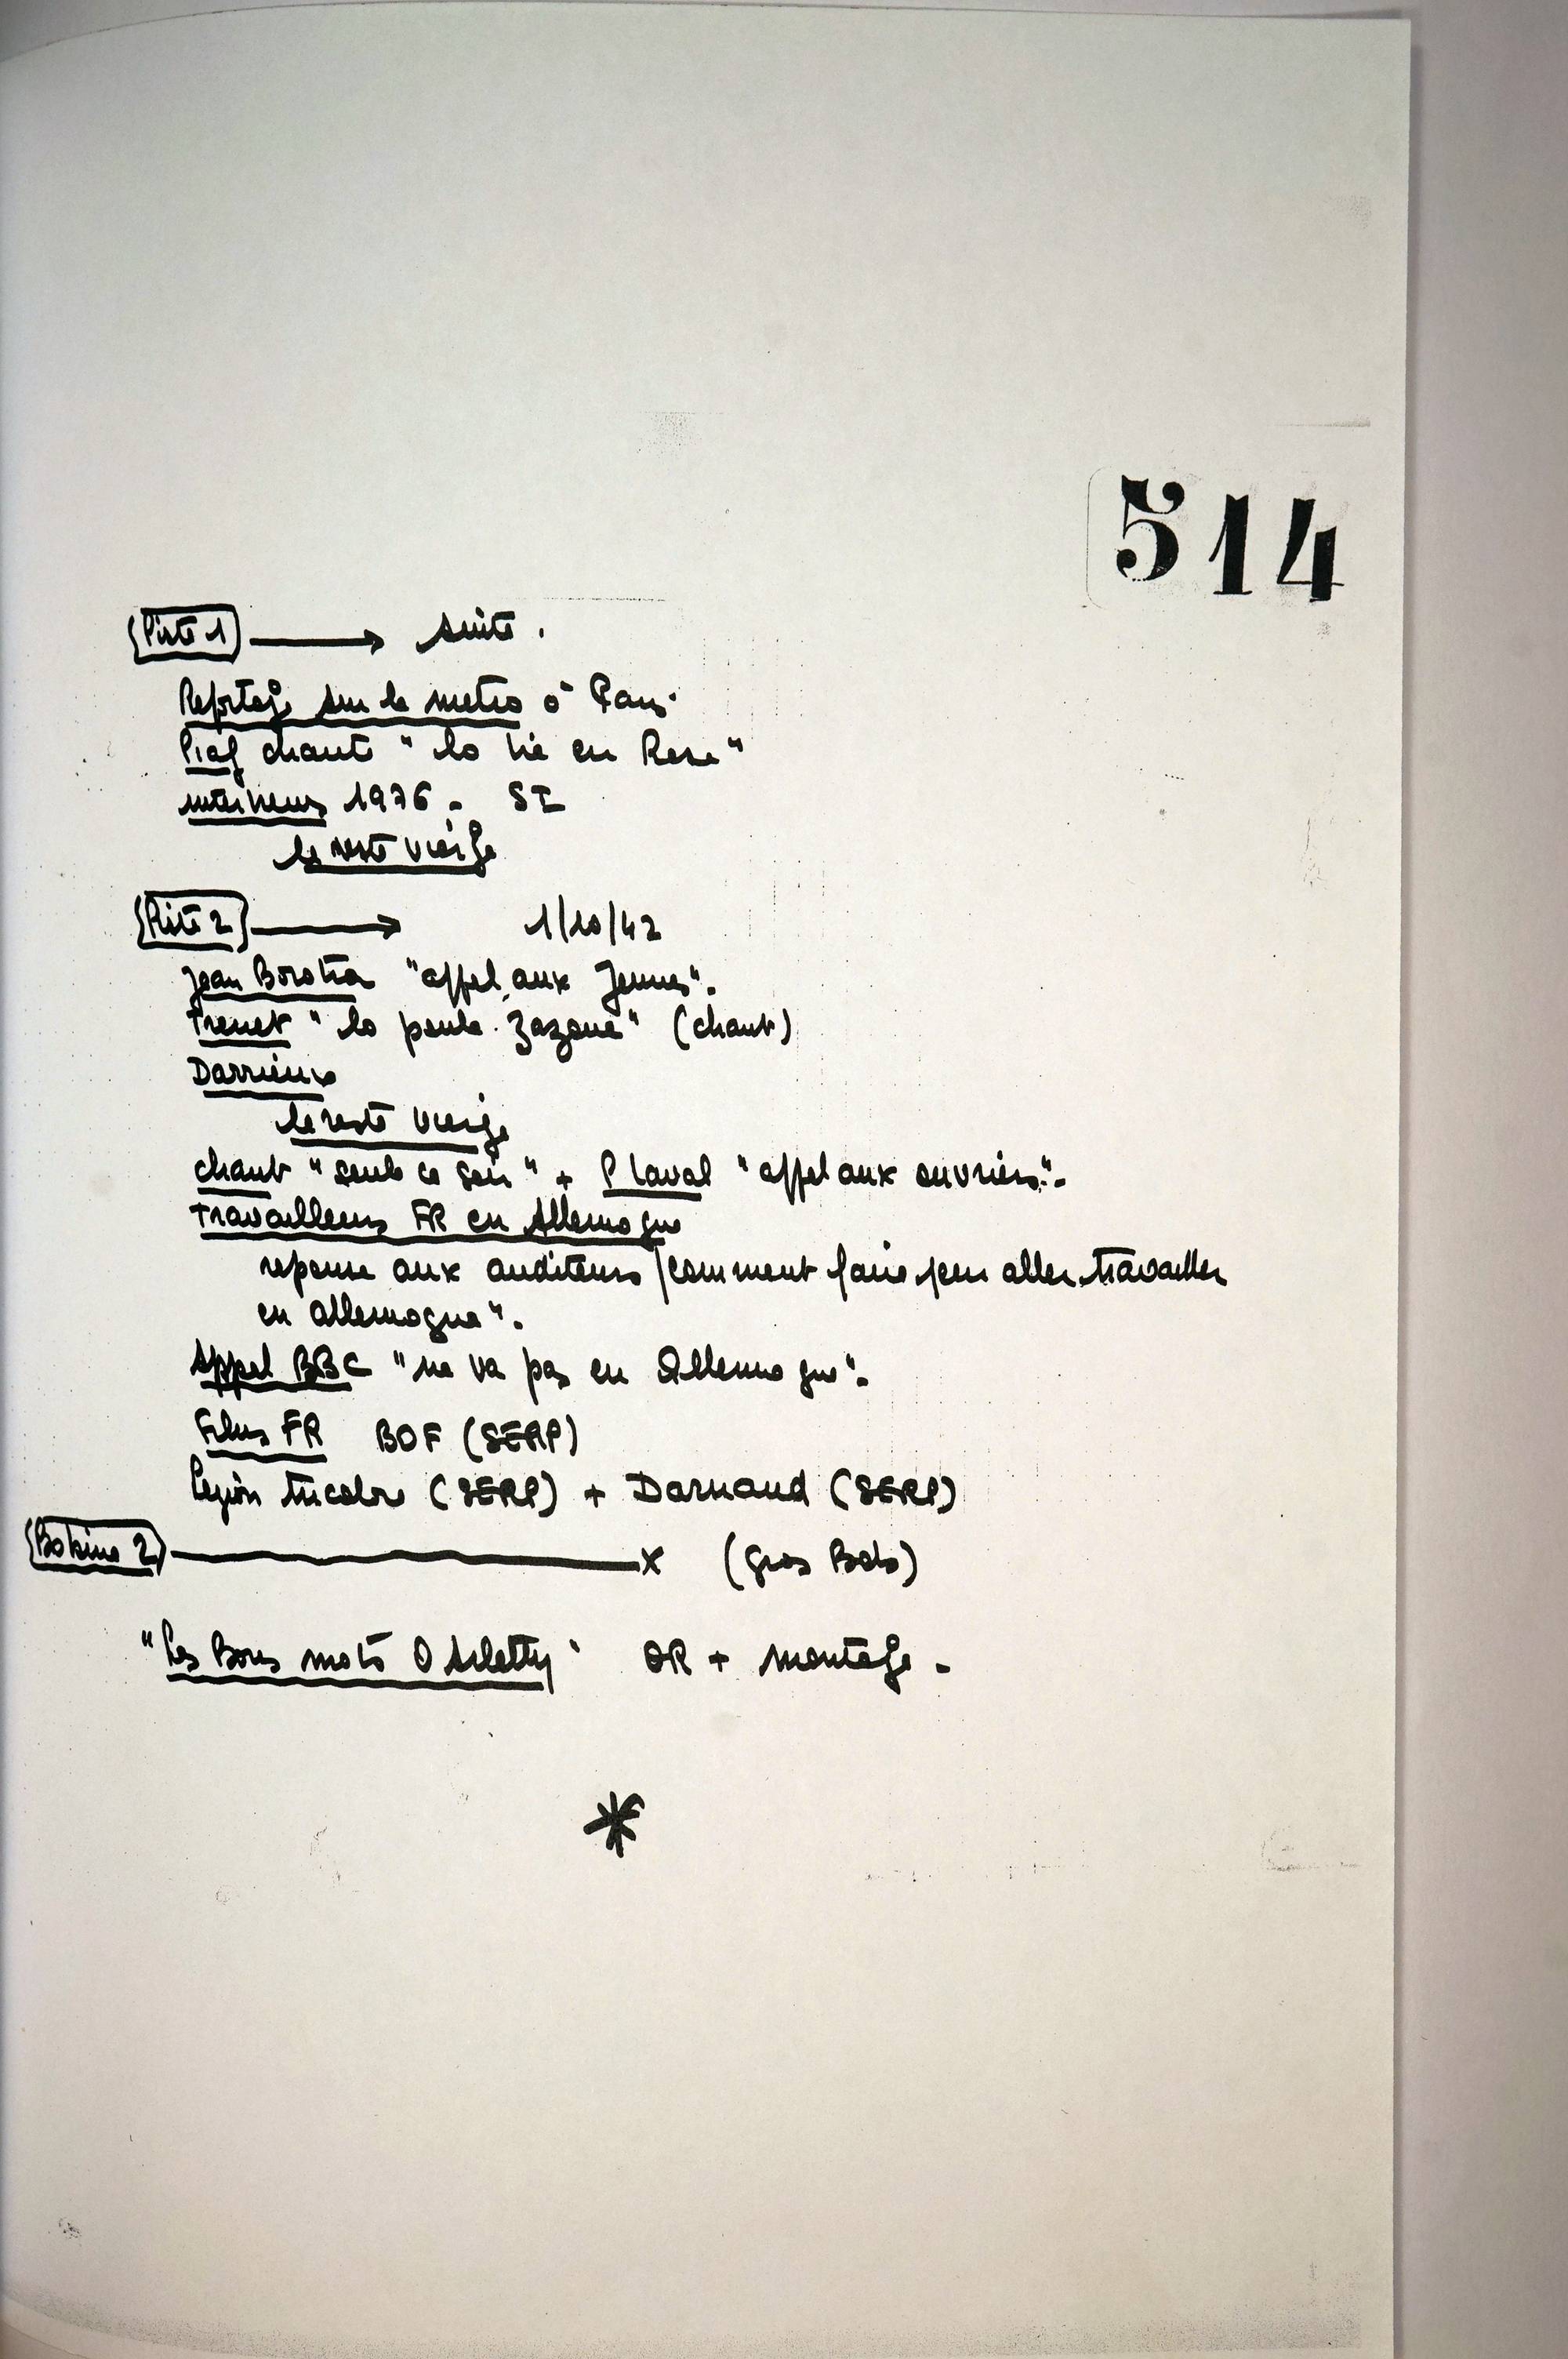 514
Piste 1 → suite.
Reportage sur le metro à Paris.
Piaf chante "la vie en Rose"
interviews 1976 - SI
le reste vierge
Piste 2 → 1/10/42
Jean Borotra "appel aux Jeunes".
Trenet "la poule zazoue" (chant)
Darrieux
le reste vierge
chant "seule ce soir" + P Laval "appel aux ouvriers".-
Travailleurs FR en Allemagne
reponse aux auditeurs "comment faire pour aller travailler
en Allemagne".
Appel BBC "ne va pas en Allemagne".
Films FR BOF (SERP)
Legion tricolore (SERP) + Darnand (SERP)
Bobine 2 x (gros Bob)
"Les Bons mots D Arletty" OR + montage -
*